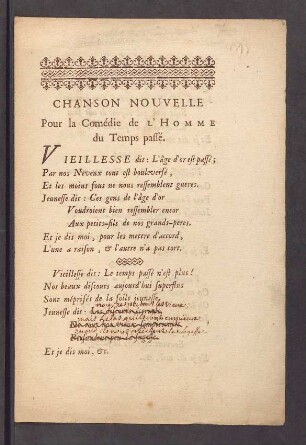 CHANSON NOUVELLE
Pour la Comédie de L'HOMME
du Temps passé.
VIEILLESSE dit: L'âge d'or est passé;
Par nos Neveux tout est bouleversé,
Et les moins fous ne nous ressemblent gueres.
Jeunesse dit: Ces gens de l'âge d'or
Voudroient bien ressembler encor
Aux petits-fils de nos grands-peres.
Et je dis moi, pour les mettre d'accord,
L'une a raison, & l'autre n'a pas tort.
Vieillesse dit: Le temps passé n'est plus!
Nos beaux discours aujourd'hui superflus
Sont méprisés de la folle jeunesse,
Jeunesse dit:
Et je dis moi, &c.